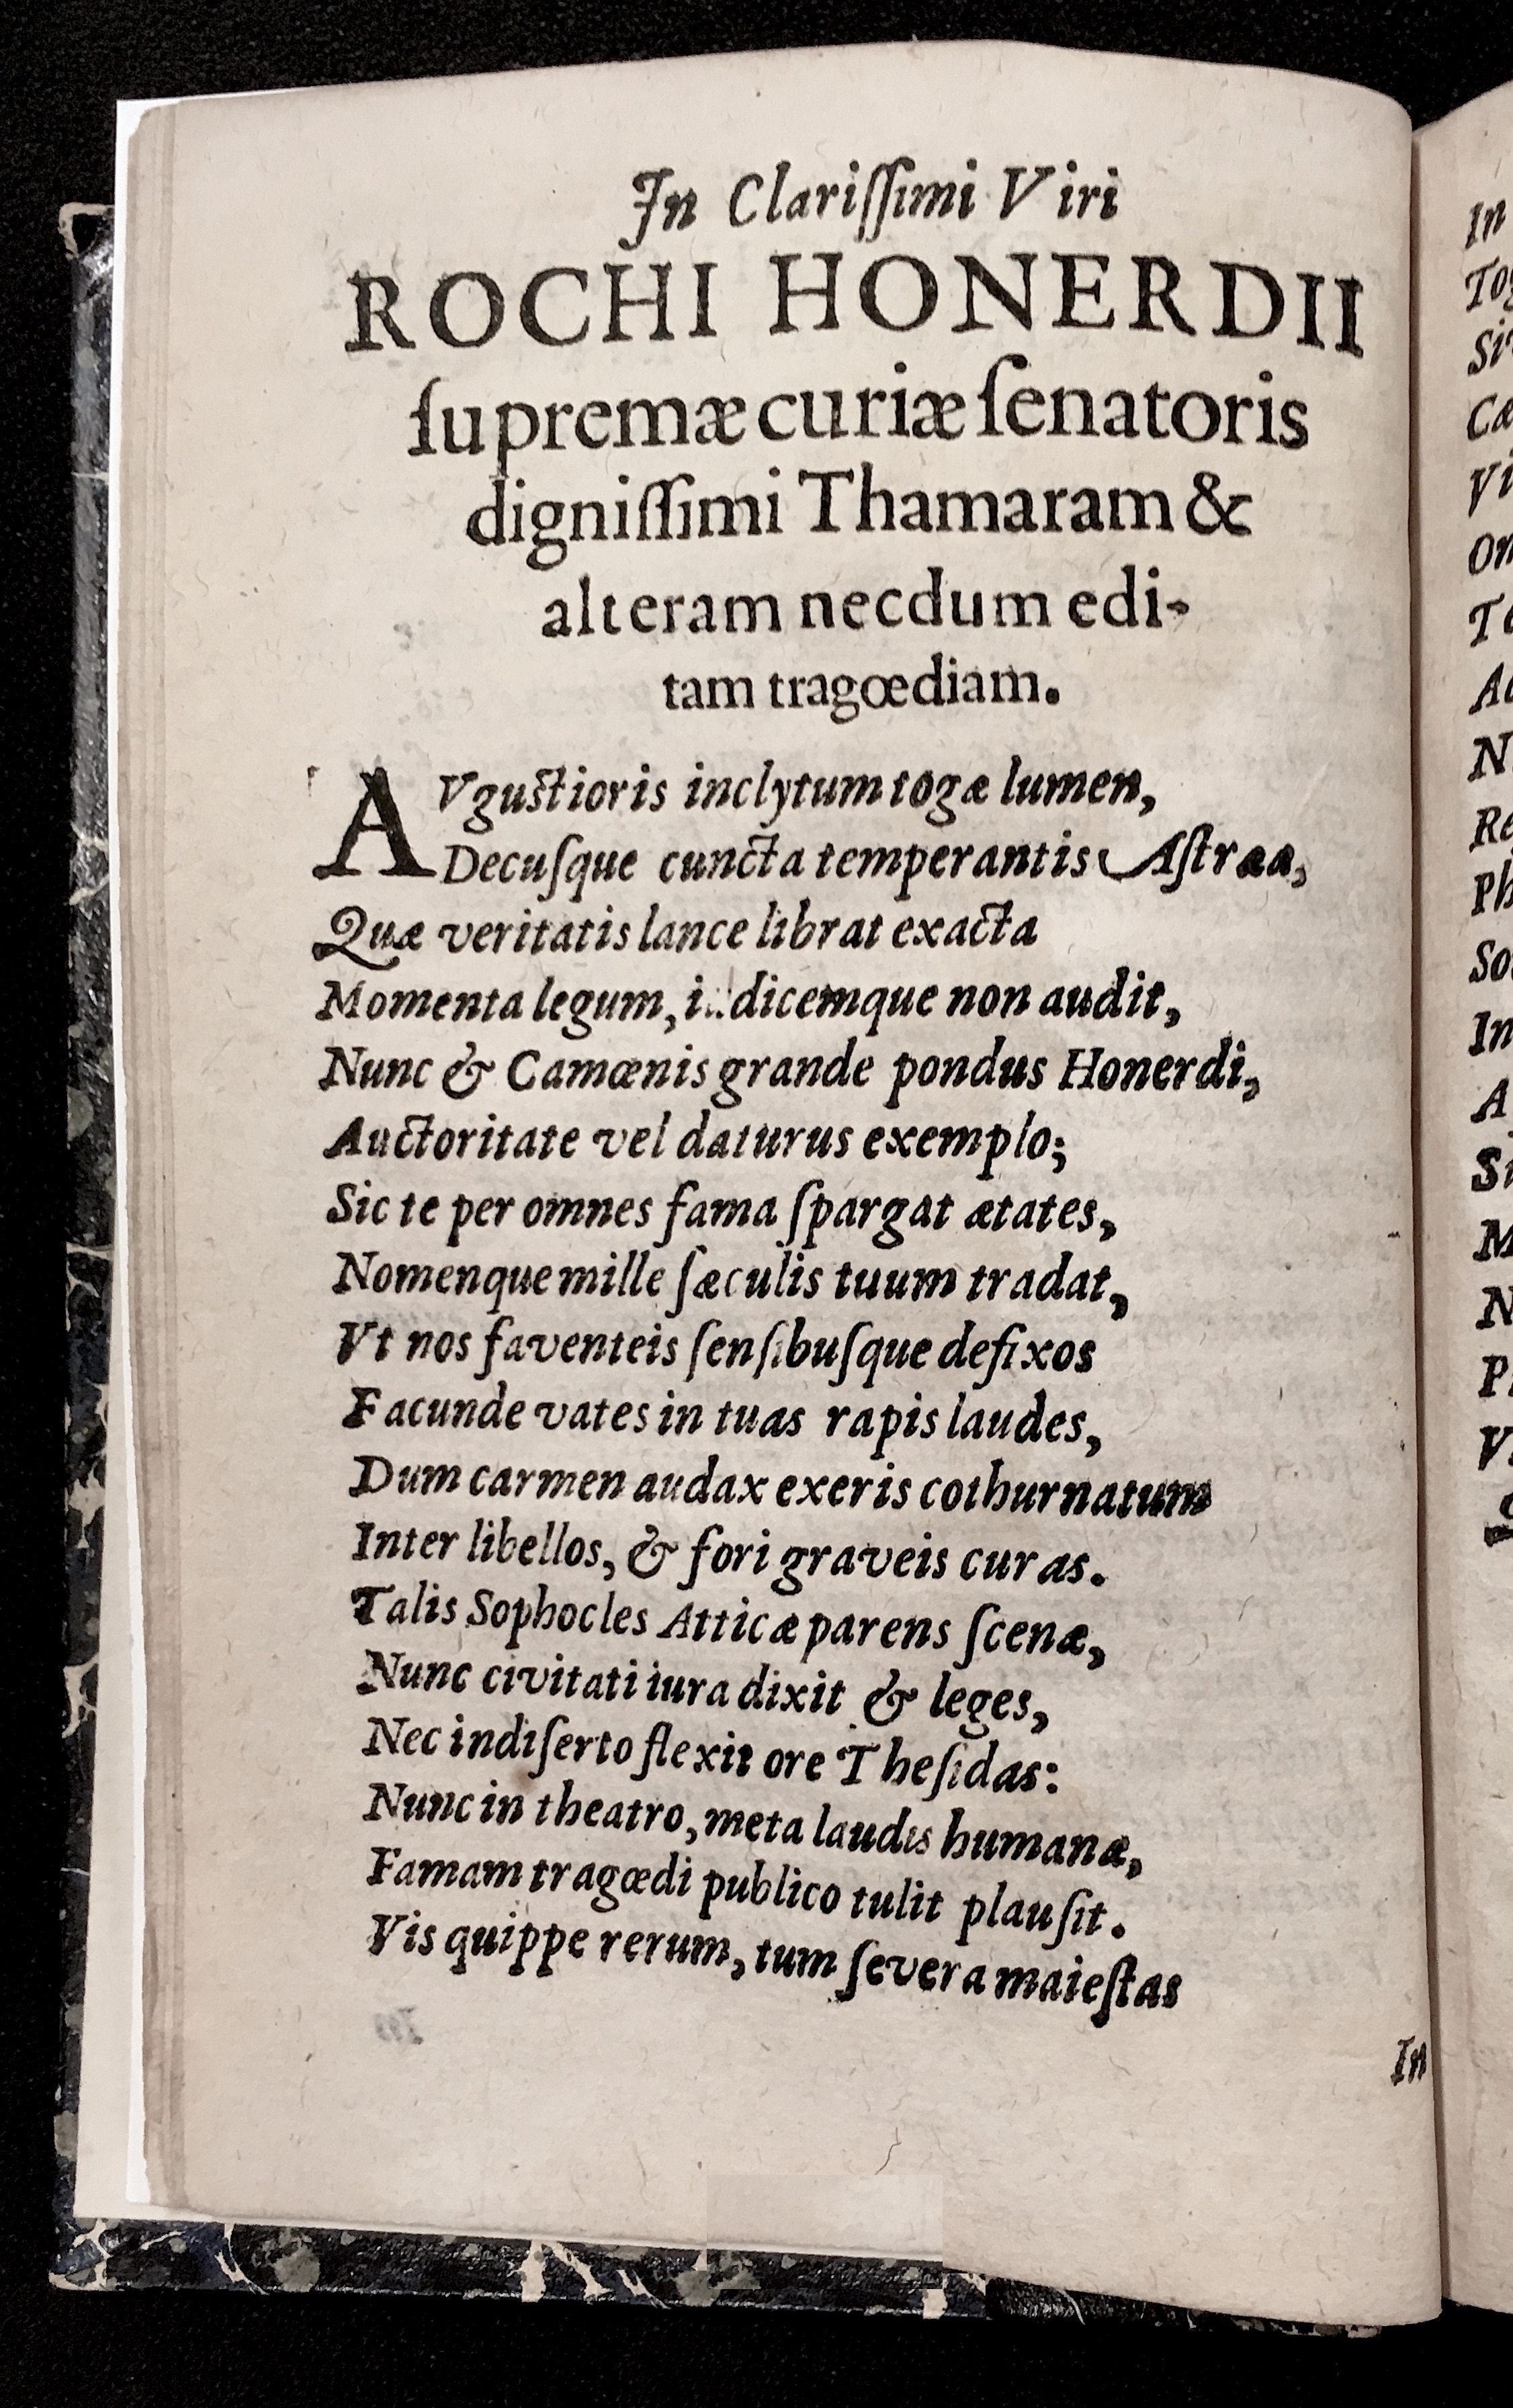 In Clariſſimi Viri
ROCHI HONERDII
ſupremæ curiæ ſenatoris
digniſſimi Thamaram &
alteram necdum edi-
tam tragœdiam.
AVguſtioris inclytum togæ lumen,
Decuſque cuncta temperantis Aſtrææ,
Quæ veritatis lance librat exacta
Momenta legum, non audit,
Nunc & Camœnis grande pondus Honerdi,
Auctoritate vel daturus exemplo;
Sic te per omnes fama ſpargat ætates,
Nomenque mille ſæculis tuum tradat,
Vt nos faventeis ſenſibuſque defixos
Facunde vates in tuas rapis laudes,
Dum carmen audax exeris cothurnatum
Inter libellos, & fori graveis curas.
Talis Sophocles Atticæ parens ſcenæ,
Nunc civitati iura dixit & leges,
Nec indiſerto flexit ore Theſidas:
Nunc in theatro, meta laudis humanæ,
Famam tragœdi publico tulit plauſit.
Vis quippe rerum, tum ſevera maieſtas
In
In